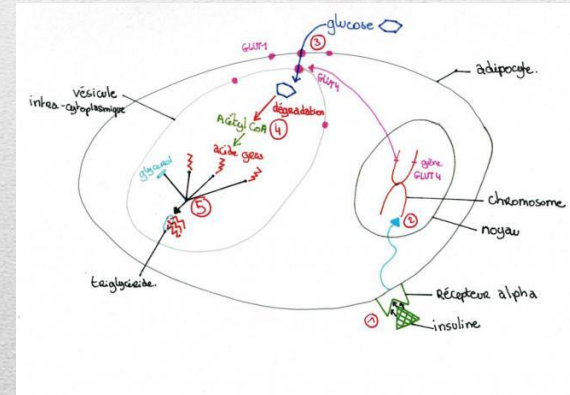 glucose
GLUT1
③
GLUT4
adipocyte.
vésicule
intra-cytoplasmique
dégradation
Acétyl CoA
④
acide gras
glycérol
⑤
triglycéride.
gène
GLUT4
chromosome
②
noyau
Récepteur alpha
①
insuline